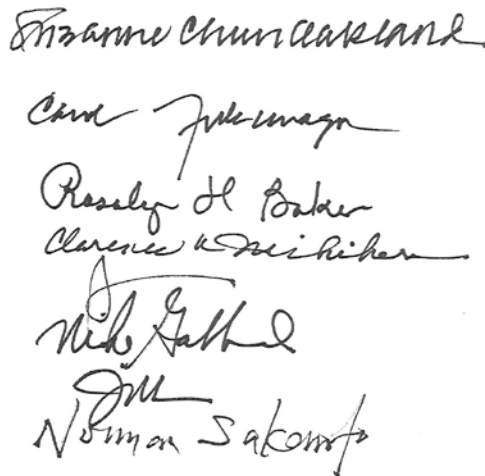 Suzanne Chun Oakland
Carol Fukunaga
Rosalyn H Baker
Clarence K Nishihara
Mike Gabbard
Norman Sakamoto